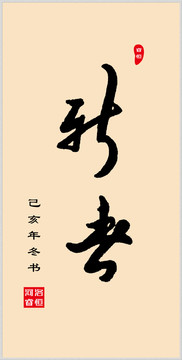 新春
己亥年冬书